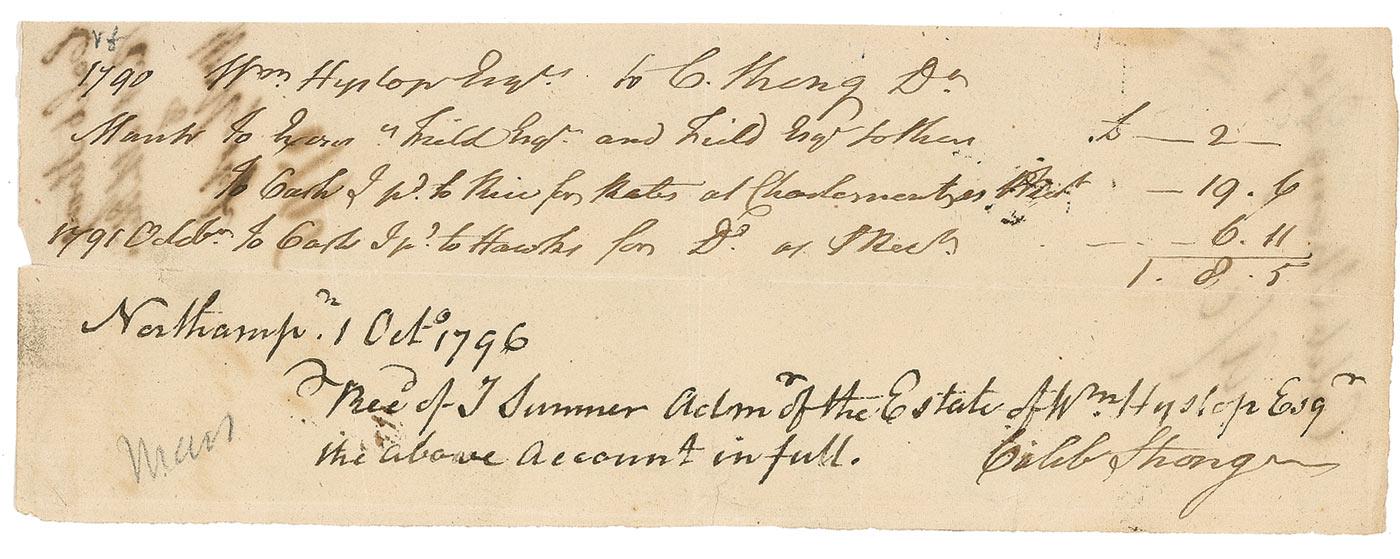 1790 Wm Hyslop Esqr to C. Strong Dr
March To Exrs Field Esqr and Field Esqr £ — 2 —
To Cash I pd to Rice for Rates at Charlemont as Rect — 19. 6
1791 Octobr To Cash I pd to Hawks for Do as Rect — 6. 11
1. 8. 5
Northampn. 1 Octo 1796
Recd of I Sumner Admr of the Estate of Wm Hyslop Esqr
the above account in full. Caleb Strong
Mass